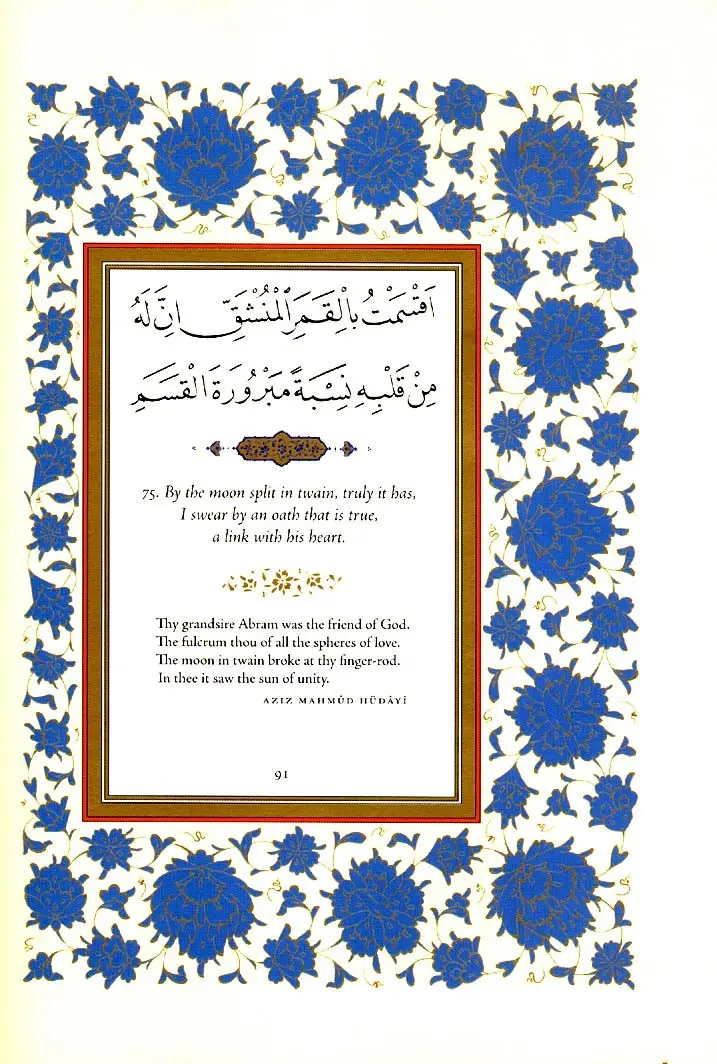 اَقْسَمْتُ بِالْقَمَرِ الْمُنْشَقِّ اِنَّ لَهُ
مِنْ قَلْبِهِ نِسْبَةً مَبْرُورَةَ الْقَسَمِ
75. By the moon split in twain, truly it has,
I swear by an oath that is true,
a link with his heart.
Thy grandsire Abram was the friend of God.
The fulcrum thou of all the spheres of love.
The moon in twain broke at thy finger-rod.
In thee it saw the sun of unity.
AZIZ MAHMÛD HÜDÂYÎ
91